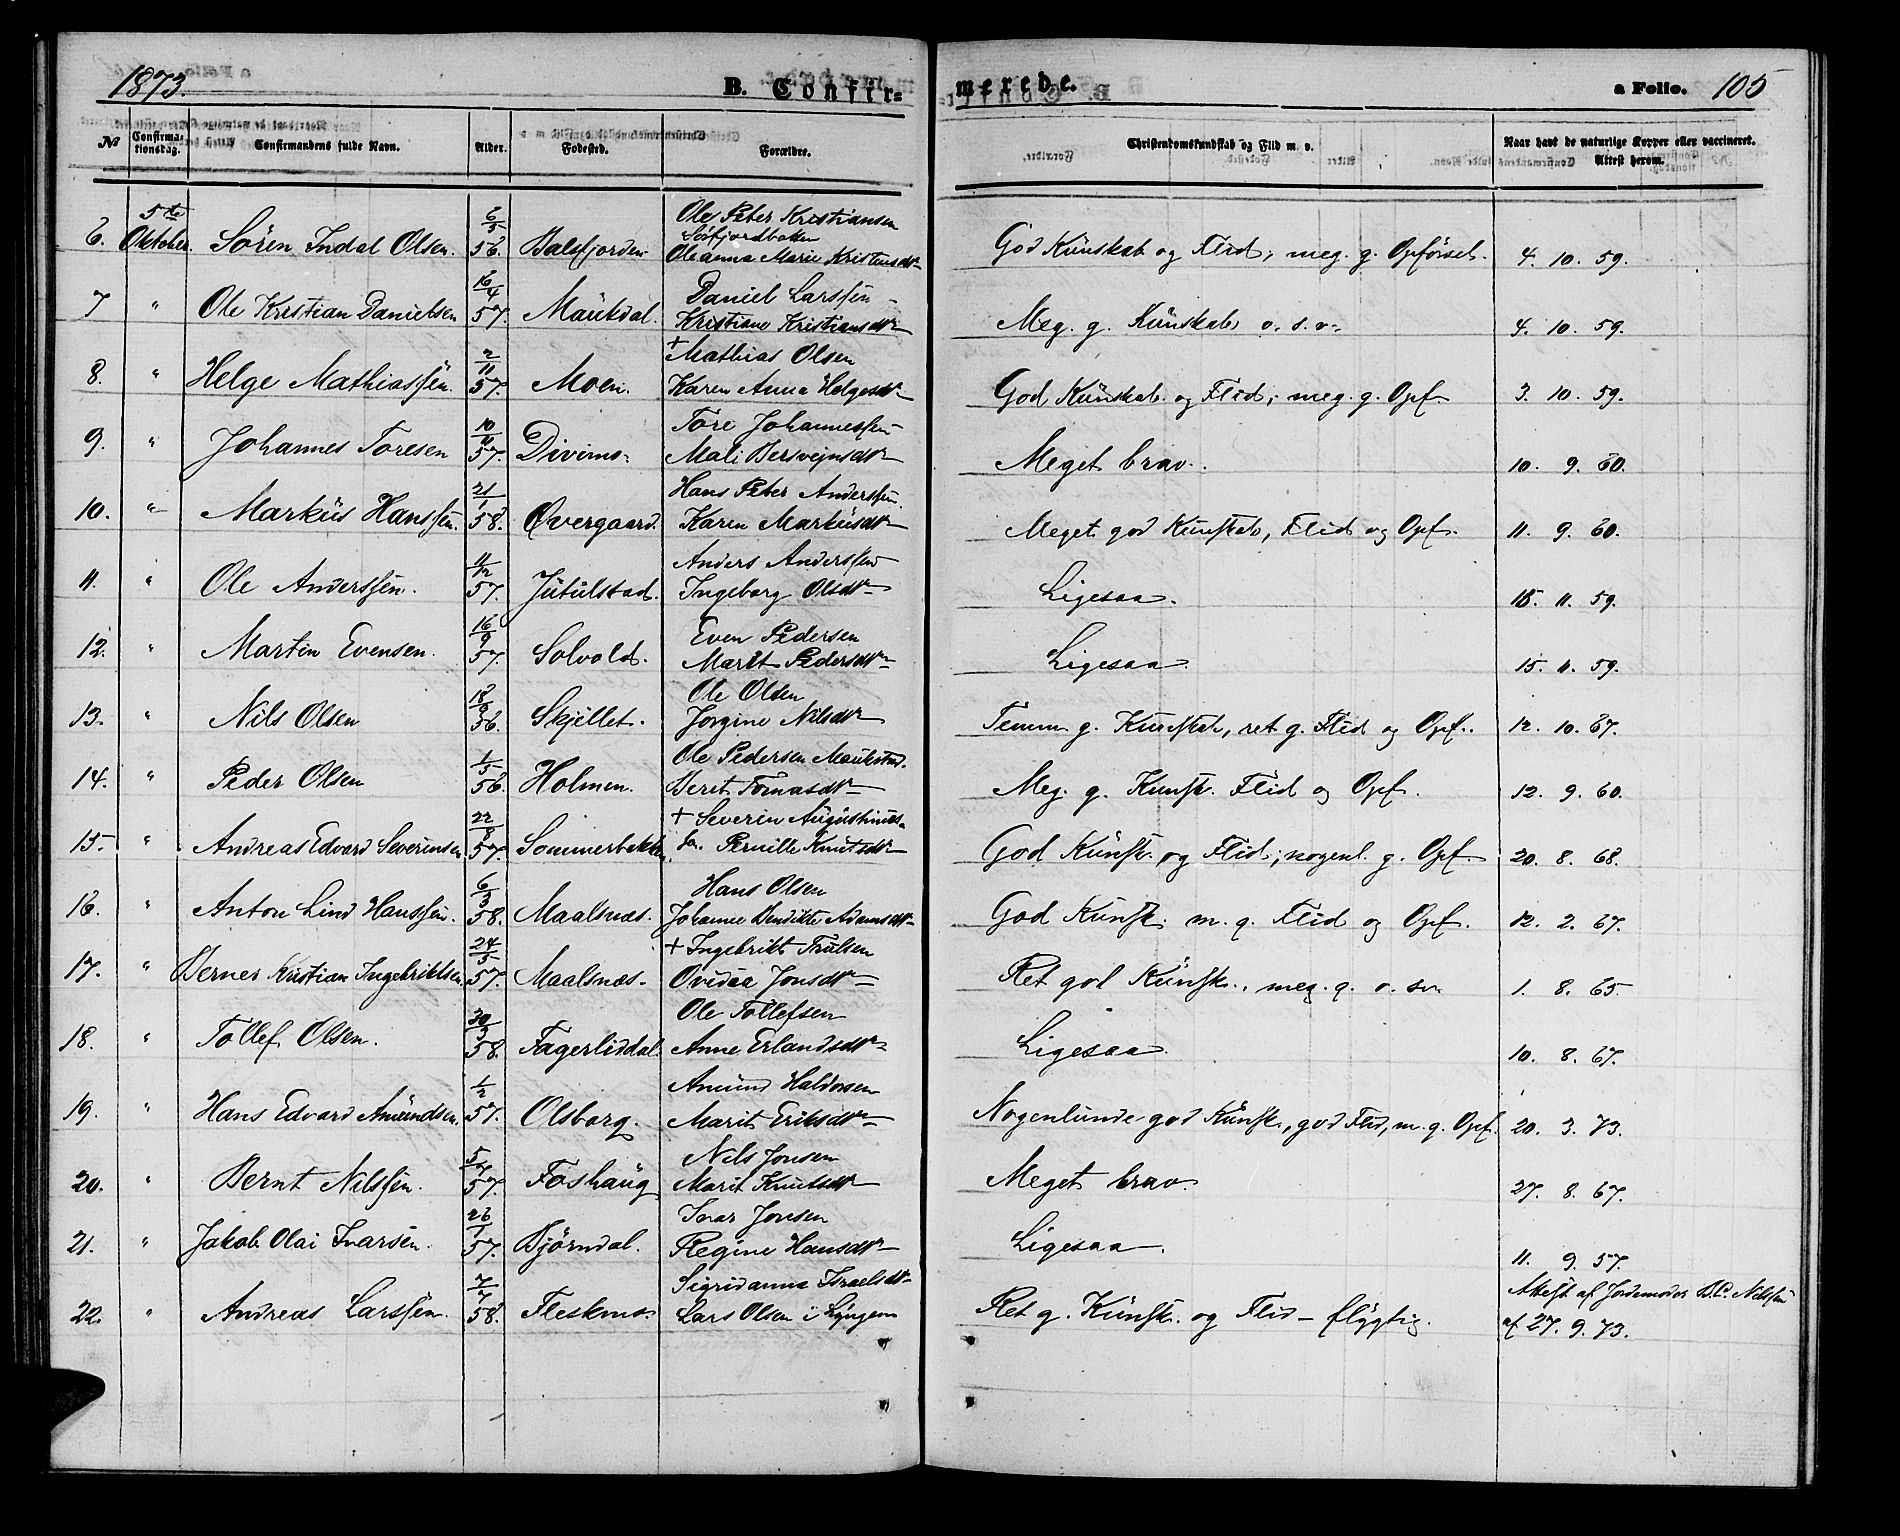 1873.
B. Confir=
merede.
a Folio. 105
№ Confirma-tionsdag. Confirmandens fulde Navn. Alder. Fødested. Forældre. Christendomskundskab og Flid m. v. Naar havt de naturlige Kopper eller vaccineret. Attest herom.
6. 5te Oktober. Sören Indal Olsen. 6/5 56. Balsfjorden Ole Peter Kristiansen Sörfjordbotn Oleanna Marie Kristensdtr God Kunskab og Flid; meg. g. Opförsel. 4. 10. 59.
7 " Ole Kristian Danielsen 16/4 57. Maukdal. Daniel Larssen Kristiane Kristiansdtr Meg. g. Kunskab o. s. v. 4. 10. 59.
8. " Helge Mathiassen. 2/11 57. Moen. + Mathias Olsen Karen Anna Helgesdtr God Kunskab og Flid; meg. g. Opf. 3. 10. 59.
9. " Johannes Toresen 10/11 57. Divimo. Tore Johannessen Mali Bersvejnsdtr Meget brav. 10. 9. 60.
10. " Markus Hanssen. 21/1 58. Øvergaard. Hans Peter Anderssen. Karen Markusdtr Meget god Kunskab, Flid og Opf. 11. 9. 60.
11. " Ole Anderssen. 11/12 57. Jutulstad. Anders Anderssen Ingeborg Olsdtr Ligesaa. 15. 11. 59.
12. " Martin Evensen. 16/9 57. Solvold. Even Pedersen Marit Pedersdtr Ligesaa. 15. 11. 59.
13. " Nils Olsen 18/9 56. Skjellet. Ole Olsen Jorgine Nilsdtr Temm. g. Kunskab, ret g. Flid og Opf. 12. 10. 67.
14. " Peder Olsen 1/5 56. Holmen. Ole Pedersen Maukstad. Beret Tomasdtr Meg. g. Kunsk. Flid og Opf. 12. 9. 60.
15. " Andreas Edvard Severinsen 22/8 57. Sommerbakken. + Severin Augustinus-sen. Pernille Knutsdtr God Kunsk. og Flid; nogenl. g. Opf. 20. 8. 68.
16. " Anton Lind Hanssen. 6/3 58. Maalsnæs. Hans Olsen Johanne Bendikte Adamsdtr God Kunsk. m. g. Flid og Opf. 12. 2. 67.
17. " Berner Kristian Ingebriktsen. 24/5 57. Maalsnæs. + Ingebrikt Trulsen Ovidia Jonsdtr Ret god Kunsk., meg. g. o. s. v. 1. 8. 65.
18. " Tollef Olsen. 30/3 58. Fagerliddal. Ole Tollefsen Anne Erlandsdtr Ligesaa. 10. 8. 67.
19. " Hans Edvard Amundsen. 1/2 57. Olsborg. Amund Haldorsen Marit Eriksdtr Nogenlunde god Kunsk., god Flid, m. g. Opf. 20. 3. 73.
20. " Bernt Nilssen. 5/7 57. Foshaug Nils Jonsen Marit Knutsdtr Meget brav. 27. 8. 67.
21. " Jakob Olai Ivarsen. 26/1 57. Björndal. Ivar Jonsen Regine Hansdtr Ligesaa. 11. 9. 57.
22. " Andreas Larssen. 7/7 58. Fleskmo. Sigridanna Israelsdtr Lars Olsen i Lyngen Ret g. Kunsk. og Flid – flygtig. Attest af Jordemoder Nilssen af 27. 9. 73.